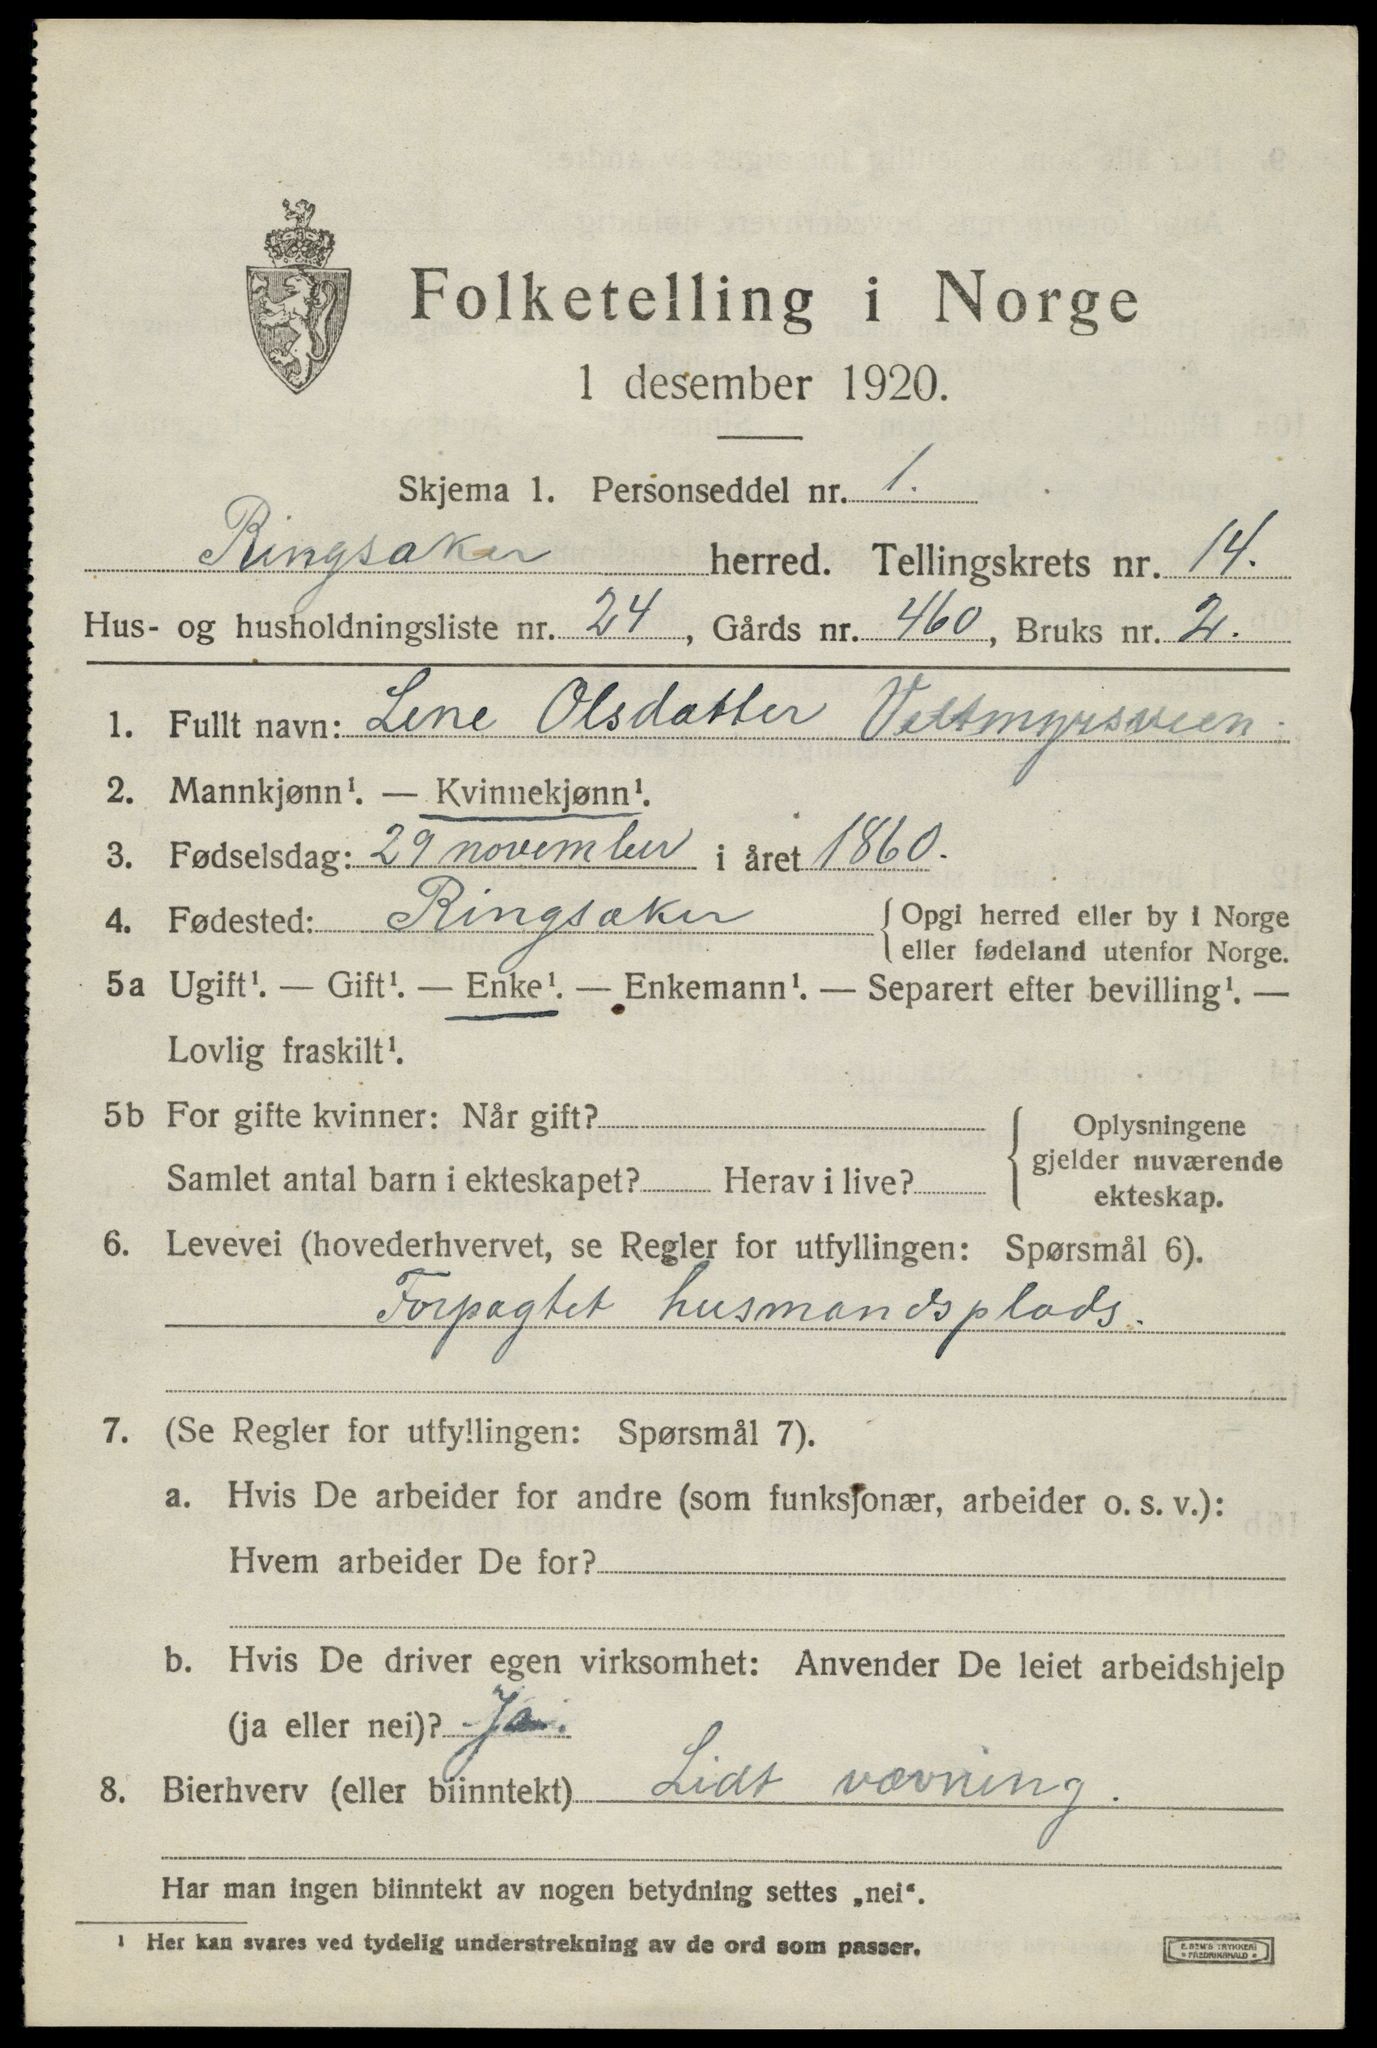 Folketelling i Norge
1 desember 1920.
Skjema 1. Personseddel nr. 1.
Ringsaker herred. Tellingskrets nr. 14.
Hus- og husholdningsliste nr. 24, Gårds nr. 460, Bruks nr. 2.
1. Fullt navn: Lene Olsdatter
2. Mannkjønn¹. — Kvinnekjønn¹.
3. Fødselsdag: 29 november i året 1860.
4. Fødested: Ringsaker {Opgi herred eller by i Norge
eller fødeland utenfor Norge.
5a Ugift¹. — Gift¹. — Enke¹. — Enkemann¹. — Separert efter bevilling¹. —
Lovlig fraskilt¹.
5b For gifte kvinner: Når gift?
Samlet antal barn i ekteskapet? Herav i live?
{Oplysningene
gjelder nuværende
ekteskap.
6. Levevei (hovederhvervet, se Regler for utfyllingen: Spørsmål 6).
Forpagtet husmandsplads.
7. (Se Regler for utfyllingen: Spørsmål 7).
a. Hvis De arbeider for andre (som funksjonær, arbeider o. s. v.):
Hvem arbeider De for?
b. Hvis De driver egen virksomhet: Anvender De leiet arbeidshjelp
(ja eller nei)? Ja.
8. Bierhverv (eller biinntekt) Lidt vævning.
Har man ingen biinntekt av nogen betydning settes „nei“.
¹ Her kan svares ved tydelig understrekning av de ord som passer.
E. SEM'S TRYKKERI
FREDRIKSHALD